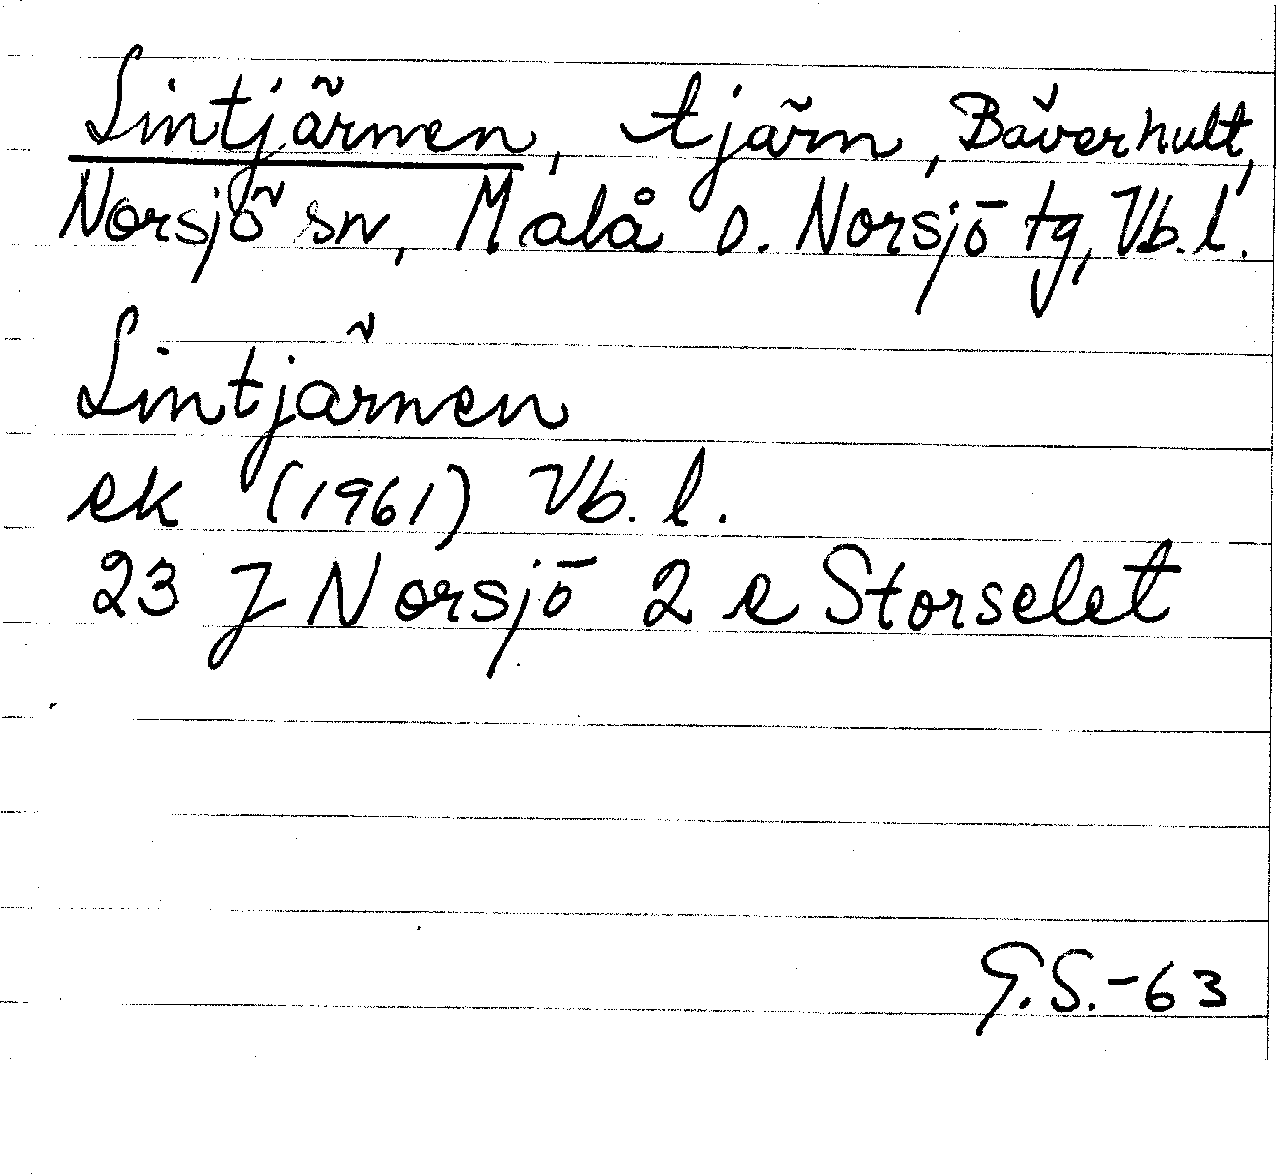 Lintjärnen, tjärn, Bäverhult,
Norsjö sn, Malå o. Norsjö tg, Vb.l.
Lintjärnen
ek (1961) Vb. l.
23 J Norsjö 2 e Storselet
G.S.-63